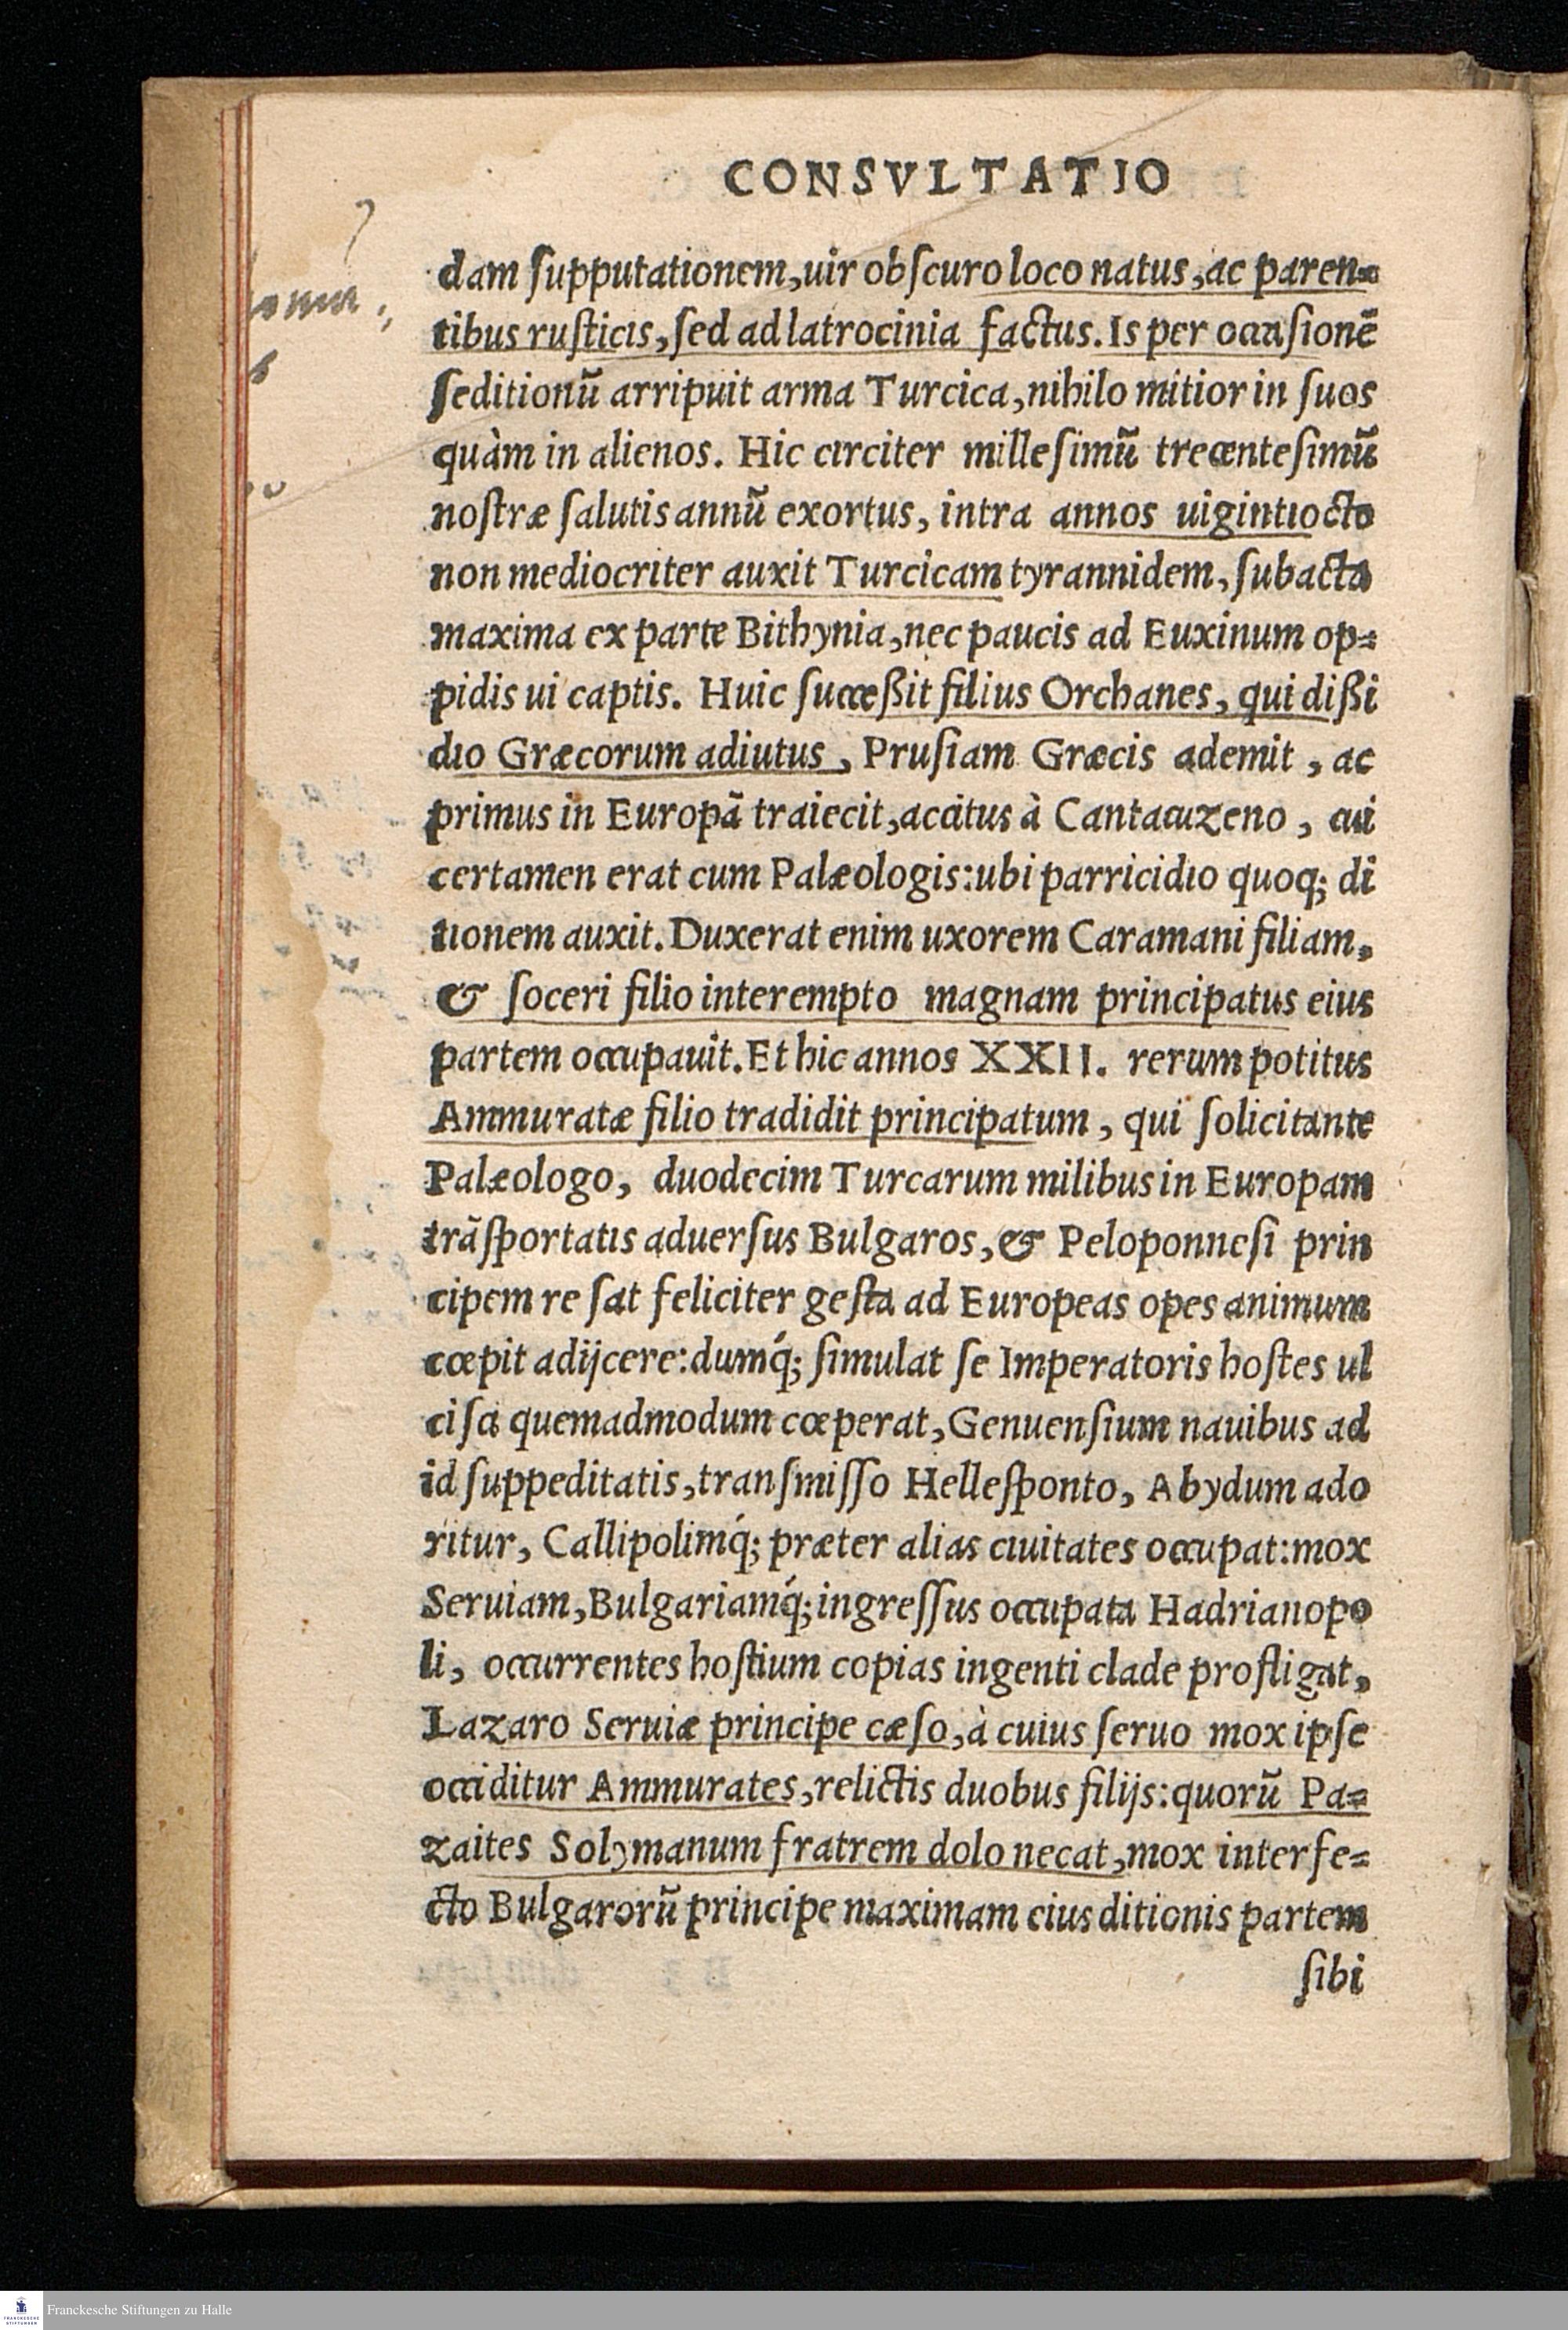 CONSVLTATIO
dam ſupputationem,uir obſcuro loco natus,ac paren=
tibus ruſticis,ſed ad latrocinia factus.Is per occaſionē
ſeditionū arripuit arma Turcica,nihilo mitior in ſuos
quàm in alienos. Hic circiter milleſimū trecenteſimū
noſtræ ſalutis annū exortus, intra annos uigintiocto
non mediocriter auxit Turcicam tyrannidem,ſubacta
maxima ex parte Bithynia,nec paucis ad Euxinum op=
pidis ui captis. Huic ſucceßit filius Orchanes, qui dißi
dio Græcorum adiutus, Pruſiam Græcis ademit, ac
primus in Europā traiecit,accitus à Cantacuzeno, cui
certamen erat cum Palæologis:ubi parricidio quoq; di
tionem auxit.Duxerat enim uxorem Caramani filiam,
& ſoceri filio interempto magnam principatus eius
partem occupauit.Et hic annos XXII. rerum potitus
Ammuratæ filio tradidit principatum, qui ſolicitante
Palæologo, duodecim Turcarum milibus in Europam
trāſportatis aduerſus Bulgaros,& Peloponneſi prin
cipem re ſat feliciter geſta ad Europeas opes animum
cœpit adijcere:dumq́; ſimulat ſe Imperatoris hoſtes ul
ciſci quemadmodum cœperat,Genuenſium nauibus ad
id ſuppeditatis,tranſmiſſo Helleſponto, Abydum ado
ritur, Callipolimq́; præter alias ciuitates occupat:mox
Seruiam,Bulgariamq́;ingreſſus occupata Hadrianopo
li, occurrentes hoſtium copias ingenti clade profligat,
Lazaro Seruiæ principe cæſo,à cuius ſeruo mox ipſe
occiditur Ammurates,relictis duobus filijs:quorū Pa=
zaites Solymanum fratrem dolo necat,mox interfe=
cto Bulgarorū principe maximam eius ditionis partem
ſibi
Franckesche Stiftungen zu Halle